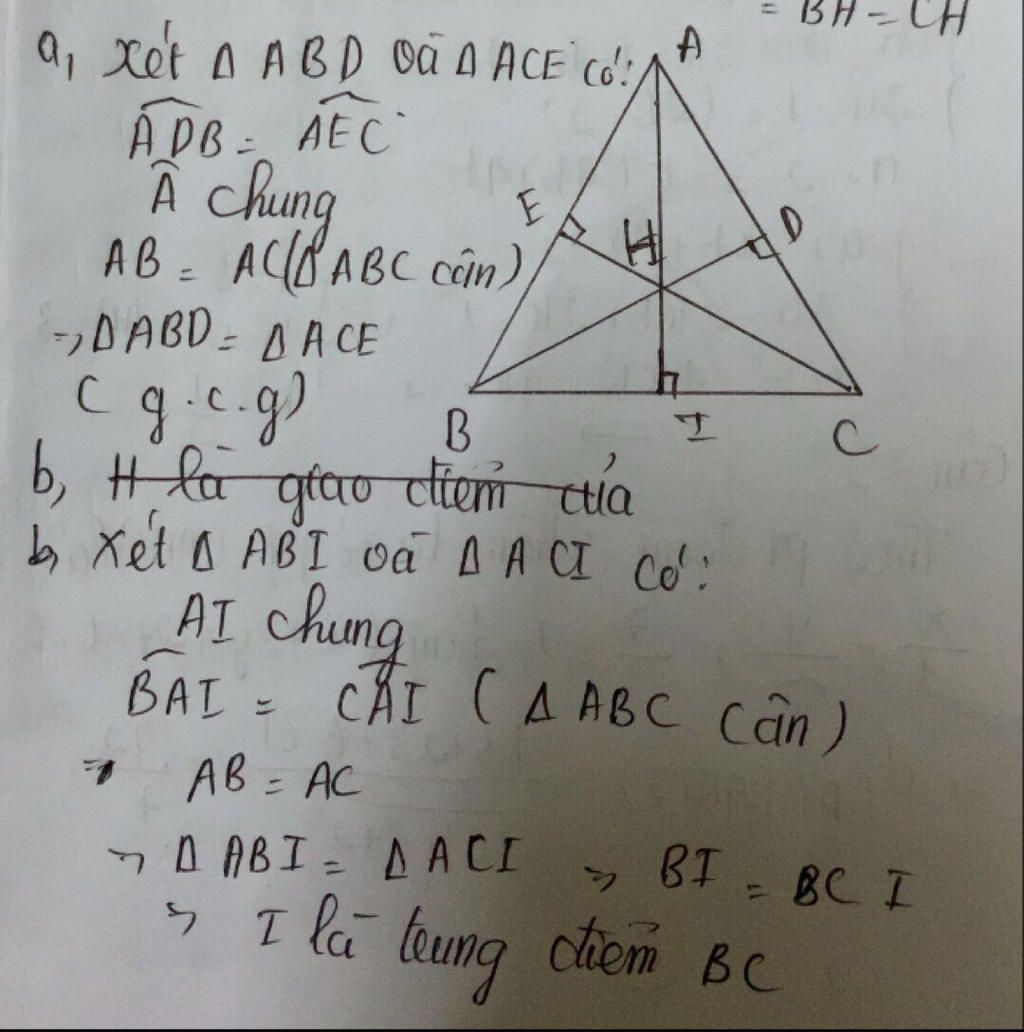 = BH = CH
a, Xét Δ ABD và Δ ACE có:
ADB = AEC
 chung
AB = AC (Δ ABC cân)
→ Δ ABD = Δ ACE
( g.c.g)
A
E
D
H
B
I
C
b, H là giao điểm của
b, Xét Δ ABI và Δ ACI có:
AI chung
BAI = CAI ( Δ ABC cân )
→ AB = AC
→ Δ ABI = Δ ACI → BI = BC I
→ I là trung điểm BC